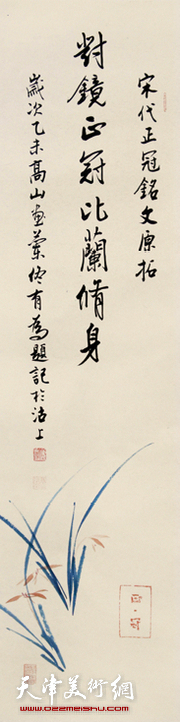 宋代正冠銘文原拓
對鏡正冠比蘭脩身
歲次乙未高山畫蘭佟有為題記於沽上
正·冠
天津美術網
www.022meishu.com